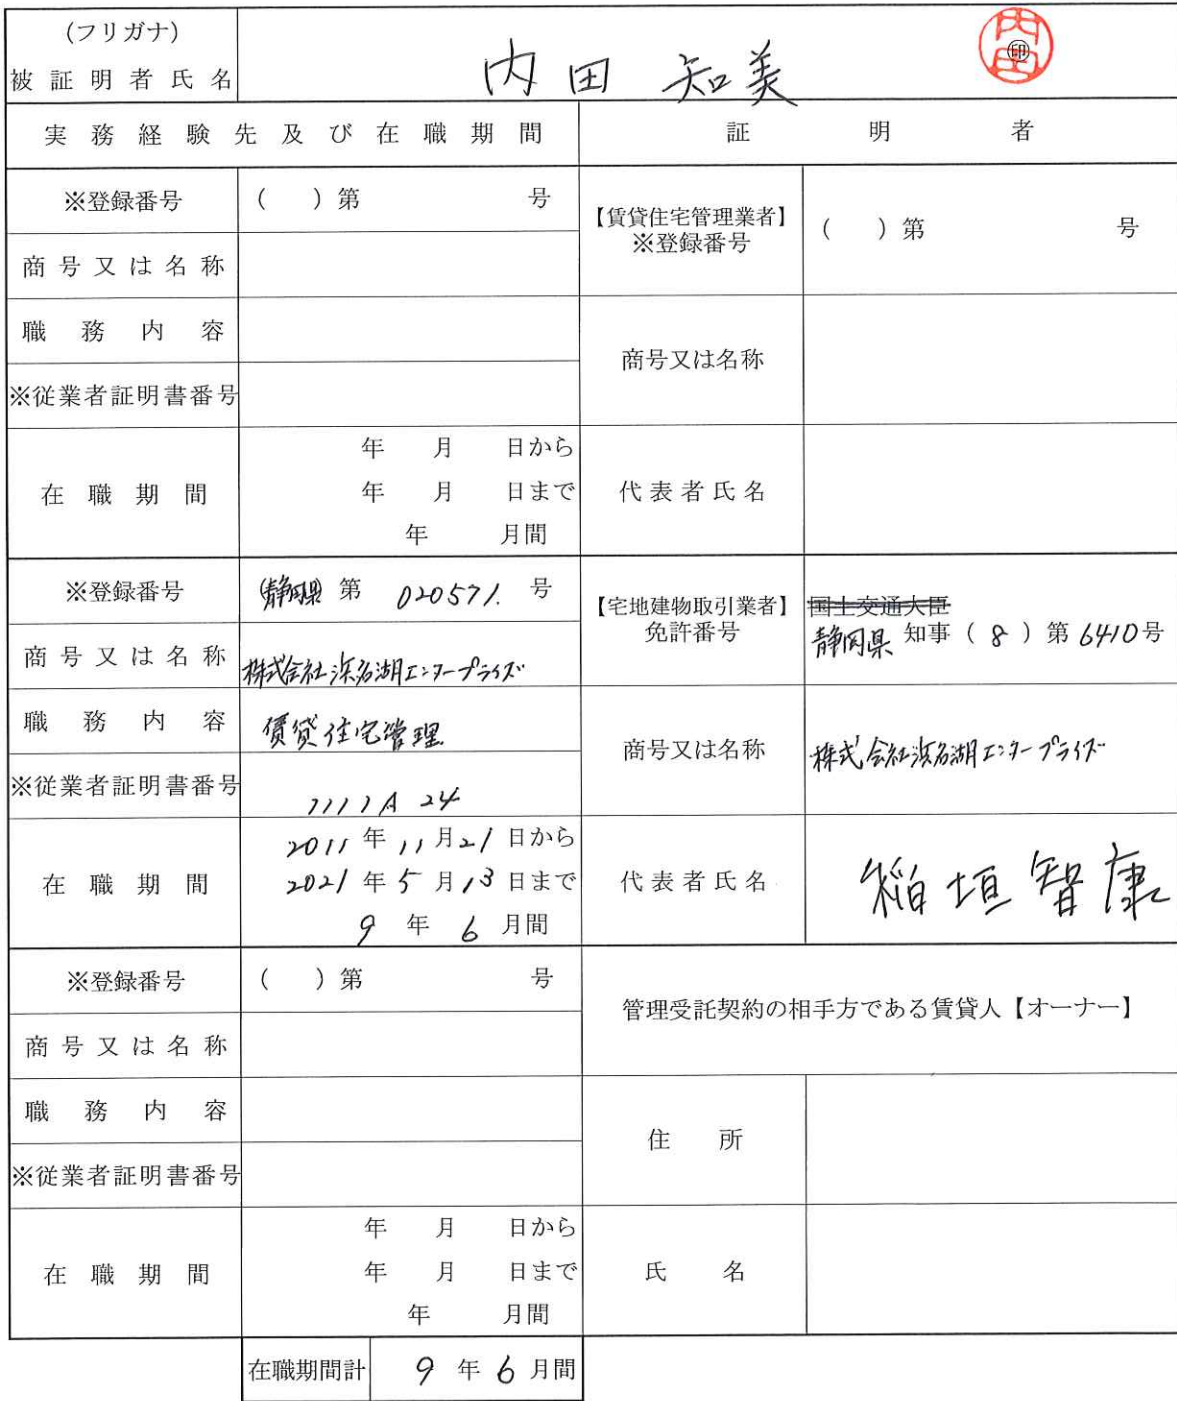 (フリガナ)
被証明者氏名
内田 知美
内田
㊞
実務経験先及び在職期間
証明者
※登録番号
( ) 第 号
【賃貸住宅管理業者】
※登録番号
( ) 第 号
商号又は名称
職務内容
商号又は名称
※従業者証明書番号
在職期間
年 月 日から
年 月 日まで
年 月間
代表者氏名
※登録番号
(静岡県) 第 020571. 号
【宅地建物取引業者】
免許番号
国土交通大臣
静岡県 知事 ( 8 ) 第 6410 号
商号又は名称
株式会社浜名湖エンタープライズ
職務内容
賃貸住宅管理
商号又は名称
株式会社浜名湖エンタープライズ
※従業者証明書番号
1111A 24
在職期間
2011 年 11 月 21 日から
2021 年 5 月 13 日まで
9 年 6 月間
代表者氏名
稲垣智康
※登録番号
( ) 第 号
管理受託契約の相手方である賃貸人【オーナー】
商号又は名称
職務内容
住所
※従業者証明書番号
在職期間
年 月 日から
年 月 日まで
年 月間
氏名
在職期間計
9 年 6 月間